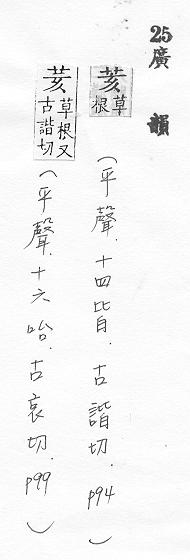 25廣韻
荄草根
(平聲.十四皆.古諧切.p94)
荄草根又古諧切
(平聲.十六咍.古哀切.p99)